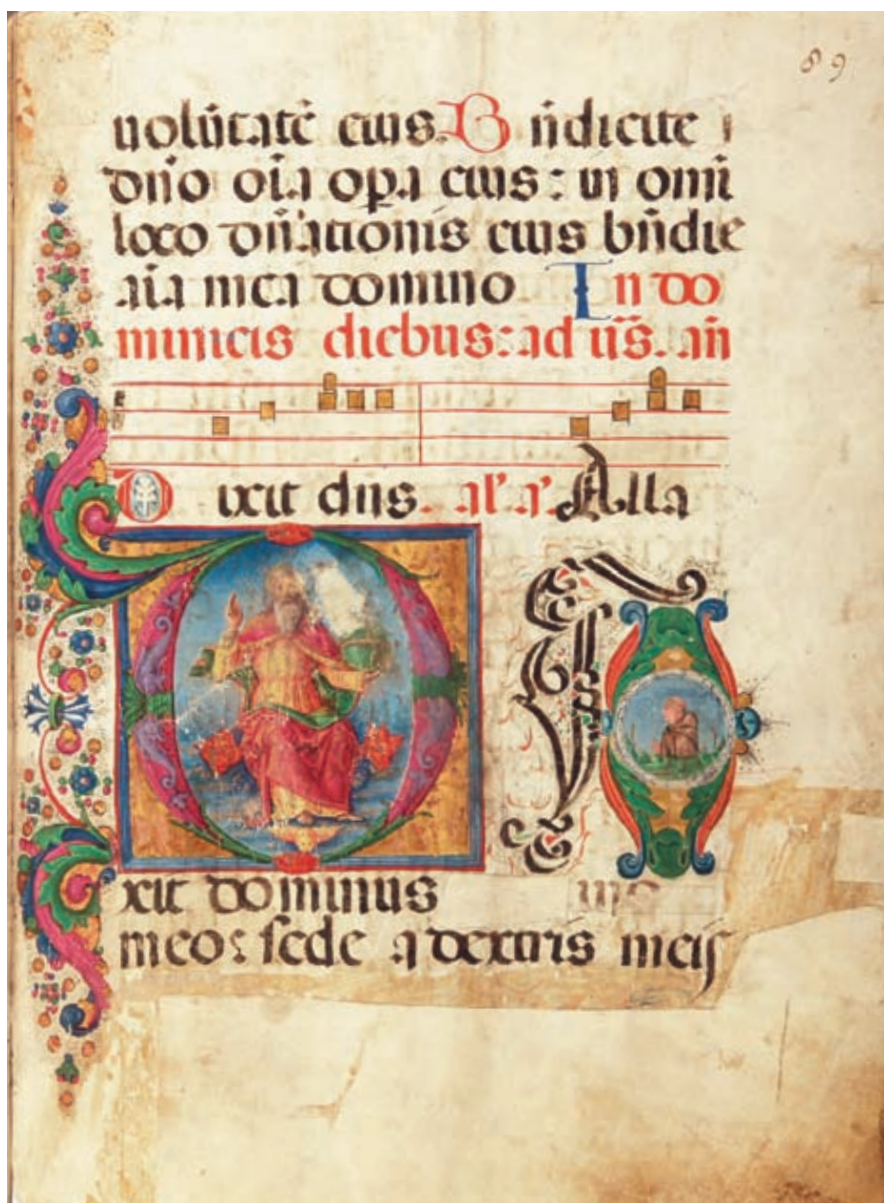 89
uolūtatē eius. Bn̄dicite
dn̄o oīa opa eius: in omi
loco dn̄ationis eius bn̄dic
aīa mea domino In do
minicis diebus: ad us̄. an̄
Dixit dn̄s. Alla
Dixit dominus
meo: sede a dextris meis